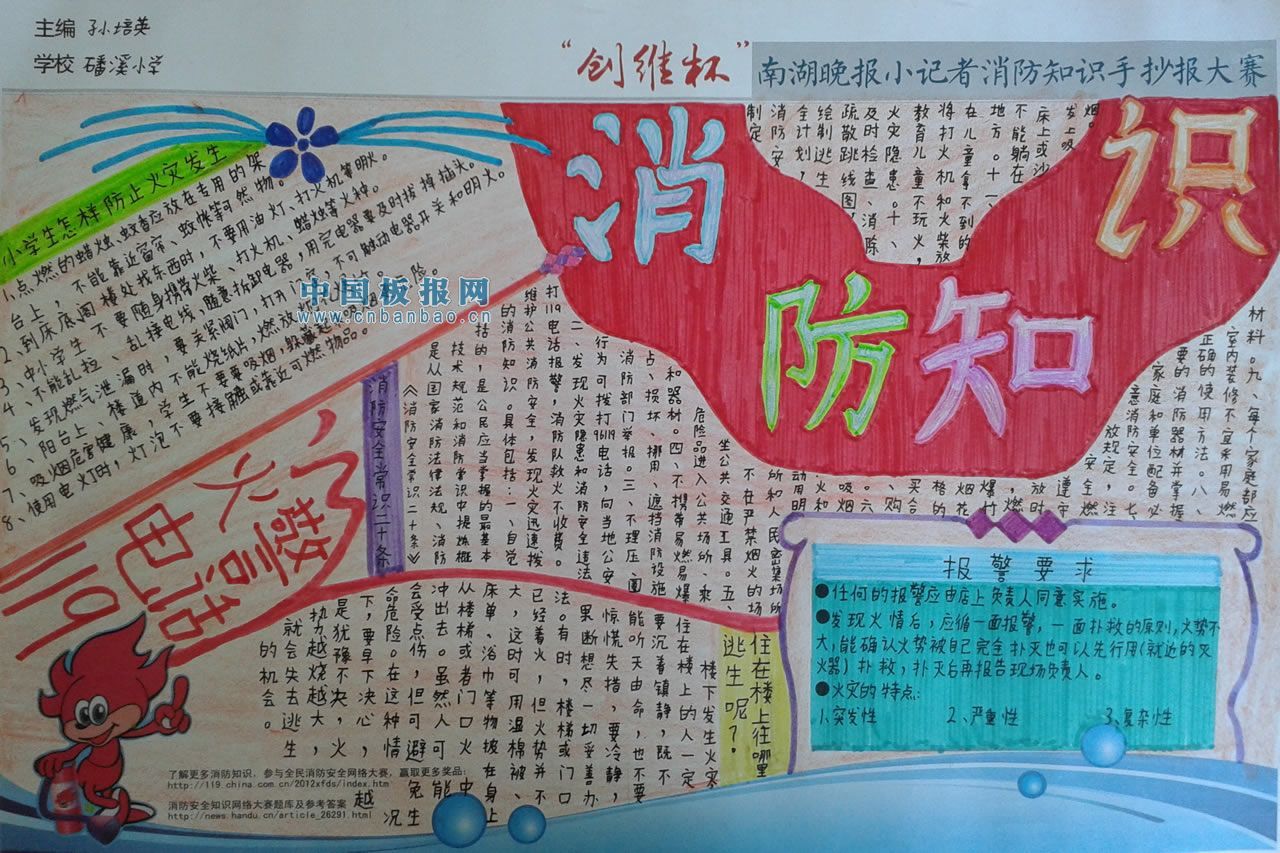 主编 孙培英
学校 磻溪小学
“创维杯”
南湖晚报小记者消防知识手抄报大赛
消防知识
小学生怎样防止火灾发生
1、点燃的蜡烛、蚊香应放在专用的架
台上，不能靠近窗帘、蚊帐等可燃物。
2、到床底、阁楼处找东西时，不要用油灯、打火机等明火。
3、中小学生不要随身携带火柴、打火机、蜡烛等火种。
4、不能乱拉、乱接电线，随意拆卸电器，用完电器要及时拔掉插头。
5、发现燃气泄漏时，要关紧阀门，打开门窗，不可触动电器开关和明火。
6、阳台上、楼道内不能烧纸片，燃放
7、吸烟危害健康，学生不要吸烟，躲藏起
8、使用电灯时，灯泡不要接触或靠近可燃物品。
中国板报网
www.cnbanbao.cn
火警电话
119
消防安全常识二十条
《消防安全常识二十条》
是从国家消防法律法规、消防
技术规范和消防常识中提炼概
括的，是公民应当掌握的最基本
的消防知识。具体包括：一、自觉
维护公共消防安全，发现火灾迅速拨
打119电话报警，消防队救火不收费。
二、发现火灾隐患和消防安全违法
行为可拨打96119电话，向当地公安
消防部门举报。三、不埋压、圈
占、损坏、挪用、遮挡消防设施
和器材。四、不携带易燃易爆
危险品进入公共场所、乘
坐公共交通工具。五、
不在严禁烟火的场
所和人民密集场所
动用明
火和
吸烟。六、
购买合
格的
烟花
爆竹，
燃放时
遵守
安全燃
放规定，注
意消防安全。七、
家庭和单位配备必
要的消防器材并掌握
正确的使用方法。八、
室内装修不宜采用易燃
材料。九、每个家庭都应
制定
消防安
全计划，
绘制逃生
疏散跳线图，
及时检查、消除
火灾隐患。十、
教育儿童不玩火，
将打火机和火柴放
在儿童拿不到的
地方。十一、
不能躺在
床上或沙
发上吸
烟。
报警要求
●任何的报警应由店上负责人同意实施。
●发现火情后，应循一面报警，一面扑救的原则，火势不
大，能确认火势被自己完全扑灭也可以先行用(就近的灭
火器)扑救，扑灭后再报告现场负责人。
●火灾的特点：
1、突发性 2、严重性 3、复杂性
住在楼上往哪里
逃生呢？
楼下发生火灾
住在楼上的人一定
要沉着镇静，既不
能听天由命，也不要
惊慌失措，要冷静，
果断想尽一切妥善办
法。有时，楼梯或门口
已经着火，但火势并不
大，这时可用湿棉被、
床单、浴巾等物披在身上
从楼梯或者门口火中
冲出去。虽然人可能
会受点伤，但可避免生
命危险。在这种情况
下，要早下决心，越
是犹豫不决，火
势越烧越大，
就会失去逃生
的机会。
了解更多消防知识，参与全民消防安全网络大赛，赢取更多奖品：
http://119.china.com.cn/2012xfds/index.htm
消防安全知识网络大赛题库及参考答案
http://news.handu.cn/article_26291.html